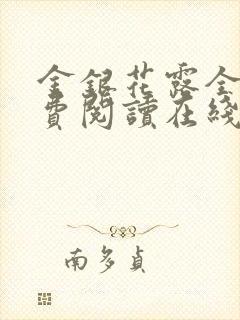 金銀花露全
費閱讀在綫
南多貞